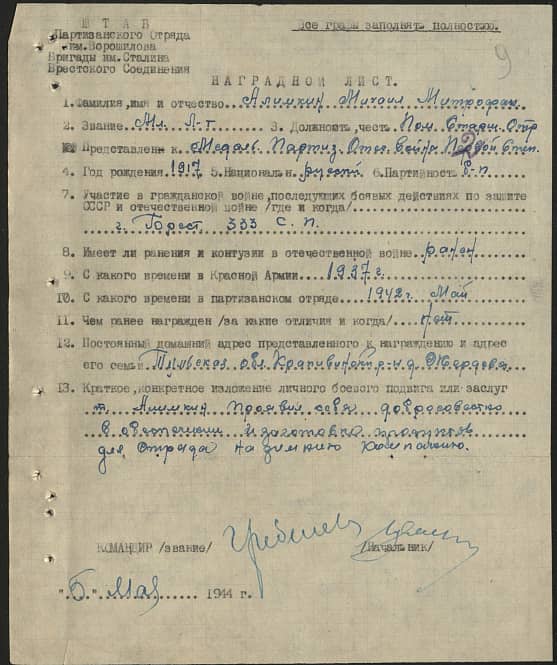 Ш Т А Б
Партизанского Отряда
им. Ворошилова
Бригады им. Сталина
Брестского Соединения
Все графы заполнять полностью.
9
Н А Г Р А Д Н О Й Л И С Т.
1. Фамилия, имя и отчество Алимкин Михаил Митрофан
2. Звание Мл. Л-т 3. Должность, часть Пом. Старш. Отр
Представлен к Медаль Партиз. Отеч. Войны Степ. 2
4. Год рождения 1917 5. Национальн. русский 6. Партийность б-п
7. Участие в гражданской войне, последующих боевых действиях по защите
СССР и отечественной войне /где и когда/
г. 333 С. П.
8. Имеет ли ранения и контузии в отечественной войне ранен
9. С какого времени в Красной Армии 1937 г.
10. С какого времени в партизанском отряде 1942 г. Май
11. Чем ранее награжден /за какие отличия и когда/ нет
12. Постоянный домашний адрес представленного к награждению и адрес
его семьи Тульская обл. р-н д.
13. Краткое, конкретное изложение личного боевого подвига или заслуг
т. Алимкин проявил себя добросовестно
в и заготовка продуктов
для Отряда на зимнию Кампанию.
КОМАНДИР /звание/ /Начальник/
"5" Мая 1944 г.